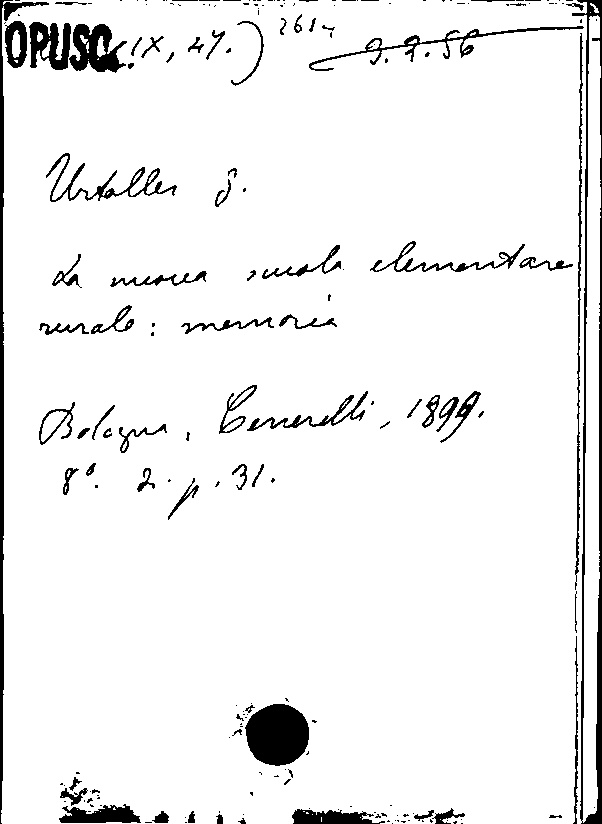 OPUSC. (IX, 47.) 2614 9.2.56
Urtoller G.
La nuova scuola elementare
rurale: memoria
Bologna, Cenerelli, 1899.
8°. 2. p. 31.